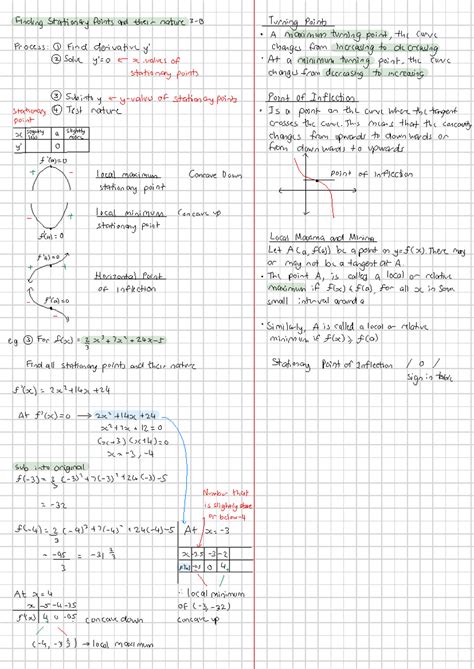 Finding Stationary Points and their nature 3-B
Process: ① Find derivative y'
② Solve y'=0 ← x values of
stationary points
③ Subinto y ← y-value of stationary points
Stationary ④ Test nature
point
x | slightly less | a | slightly more
y' | 0
f'(a)=0
+ -
local maximum Concave Down
stationary point
- +
local minimum Concave up
stationary point
f'(a)=0
f'(a)=0
+
Horizontal Point
of inflection
f'(a)=0
eg ③ For f(x) = 2/3 x³+7x²+24x-5
Find all stationary points and their nature
f'(x) = 2x²+14x+24
At f'(x)=0 → 2x²+14x+24
x²+7x+12=0
(x+3)(x+4)=0
x=-3,-4
sub into original
f(-3)=2/3(-3)³+7(-3)²+24(-3)-5
= -32
Number that
is slightly above
or below -4
f(-4)=2/3(-4)³+7(-4)²+24(-4)-5
= -95/3 = -31 2/3
At x=-3
x | -3.5 | -3 | -2
f'(x) | -0.5 | 0 | 4
∴ local minimum
of (-3,-32)
concave up
At x=4
x | -5 -4 -3.5
f'(x) | 4 0 -0.5 concave down
→ local maximum
Turning Points
• A maximum turning point, the curve
changes from increasing to decreasing
• At a minimum turning point, the curve
changes from decreasing to increasing
Point of Inflection
• Is a point on the curve where the tangent
crosses the curve. This means that the concavity
changes from upwards to downwards or
from downwards to upwards
Point of inflection
Local Maxima and Minima
Let A(a, f(a)) be a point on y=f(x). There may
or may not be a tangent at A.
• The point A, is called a local or relative
maximum if f(x) ≤ f(a), for all x in some
small interval around a
• Similarly, A is called a local or relative
minimum if f(x) ≥ f(a)
Stationary Point of Inflection / 0 /
sign in table